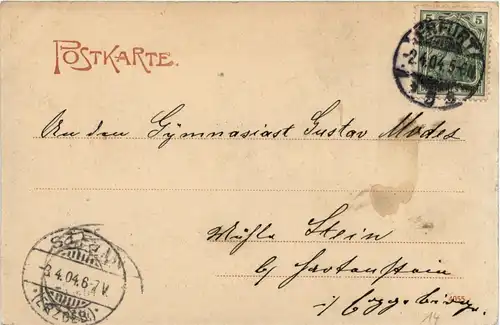 POSTKARTE.
5 5
ERFURT
-2.4.04.5-
An den Gÿmnasiast Gustav Modes
Mühle Stein
b/ Hartenstein
i/ Erzgebirge.
-3.4.04.6-7.V.
(ERZGEB.)
14